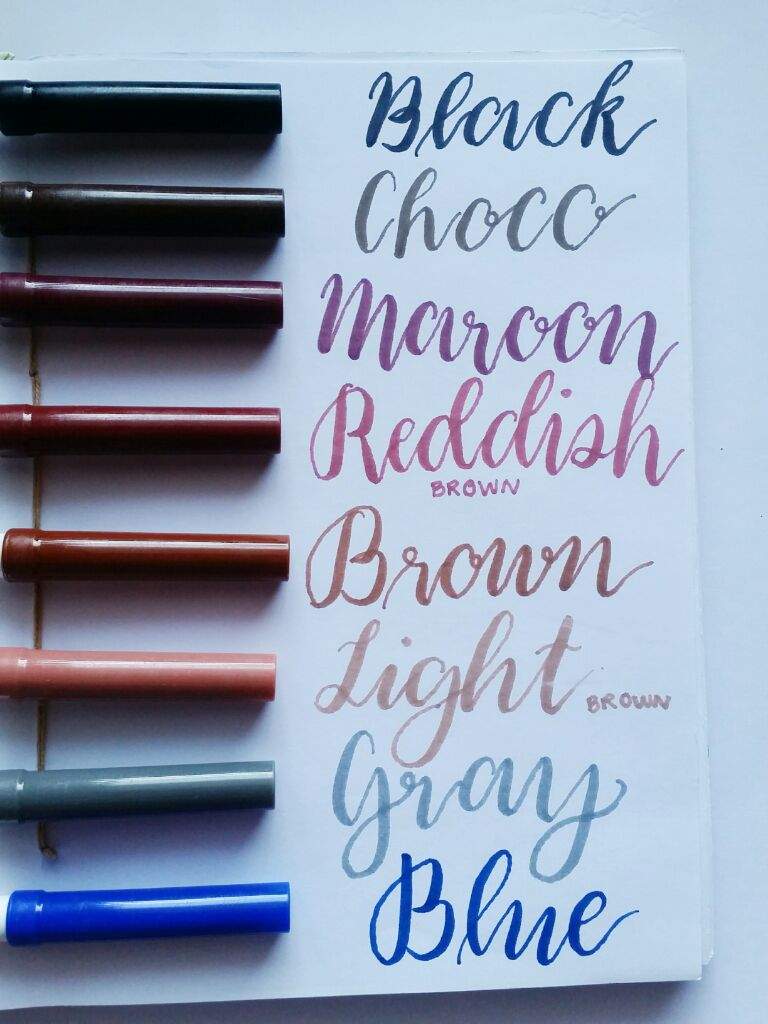 Black
Choco
Maroon
Reddish
BROWN
Brown
Light BROWN
Gray
Blue